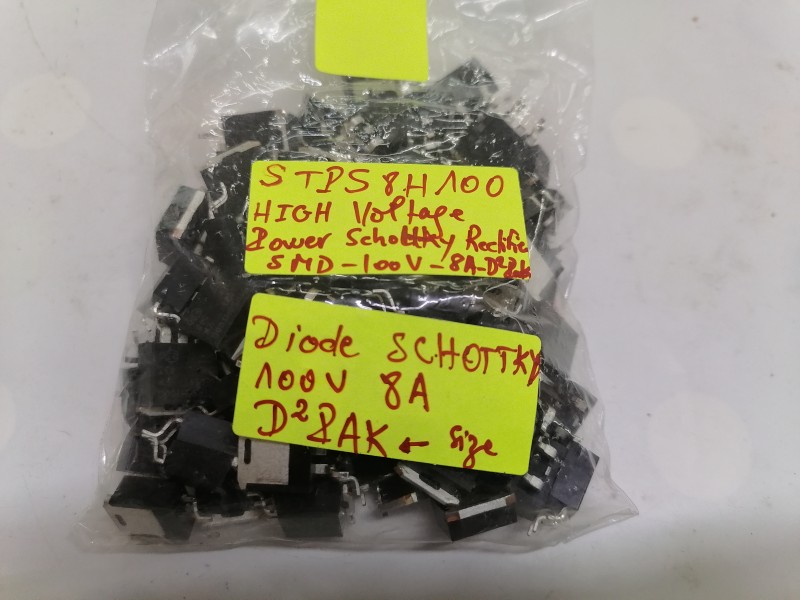 STPS8H100
HIGH Voltage
Power Schottky Rectifie
SMD-100V-8A-D²Pak
Diode SCHOTTKY
100V 8A
D²PAK ← Size